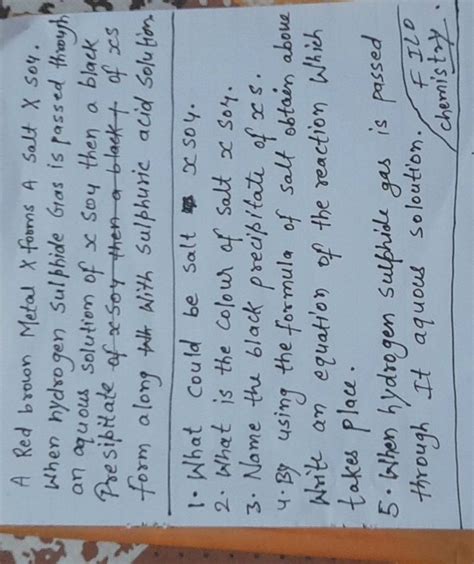 A Red brown Metal X forms A Salt X So4.
When hydrogen Sulphide Gas is passed through
an aquous solution of x So4 then a black
Presipitate of x So4 then a black + of xs
form along With Sulphuric acid Solution
1. What could be salt x So4.
2. What is the colour of Salt x So4.
3. Name the black precipitate of x s.
4. By using the formula of salt obtain above
Write an equation of the reaction Which
takes place.
5. When hydrogen sulphide gas is passed
through It aquous soloution.
FILO
chemistry.